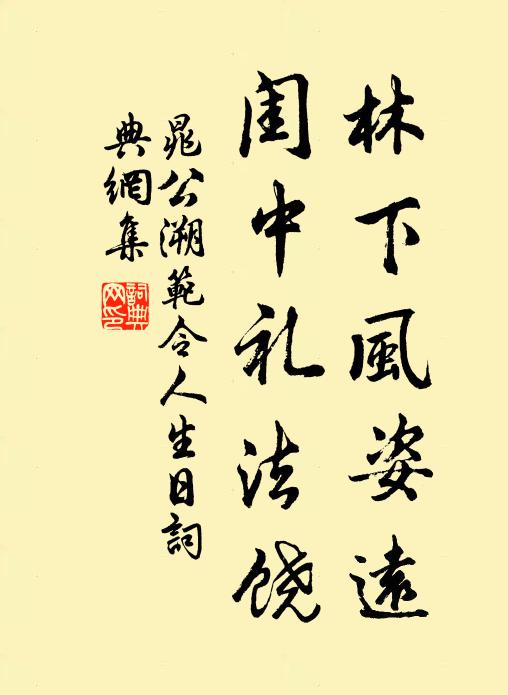 林下風姿遠
闺中礼法饶
晁公溯範令人生日詞
典網集
詞典
网印